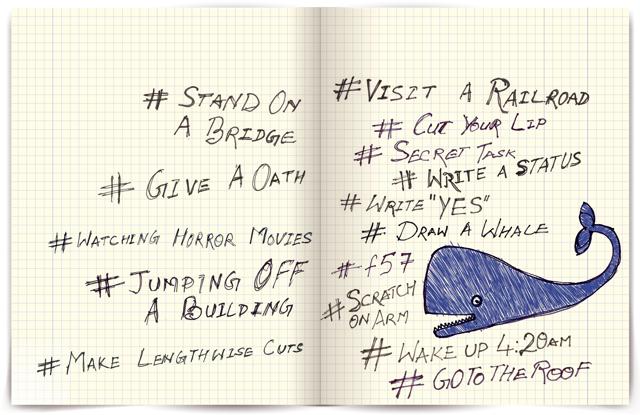 # STAND ON
A BRIDGE
# GIVE A OATH
# WATCHING HORROR MOVIES
# JUMPING OFF
A BUILDING
# MAKE LENGTHWISE CUTS
# VISIT A RAILROAD
# CUT YOUR LIP
# SECRET TASK
# WRITE A STATUS
# WRITE "YES"
# DRAW A WHALE
# f57
# SCRATCH
ON ARM
# WAKE UP 4:20AM
# GO TO THE ROOF